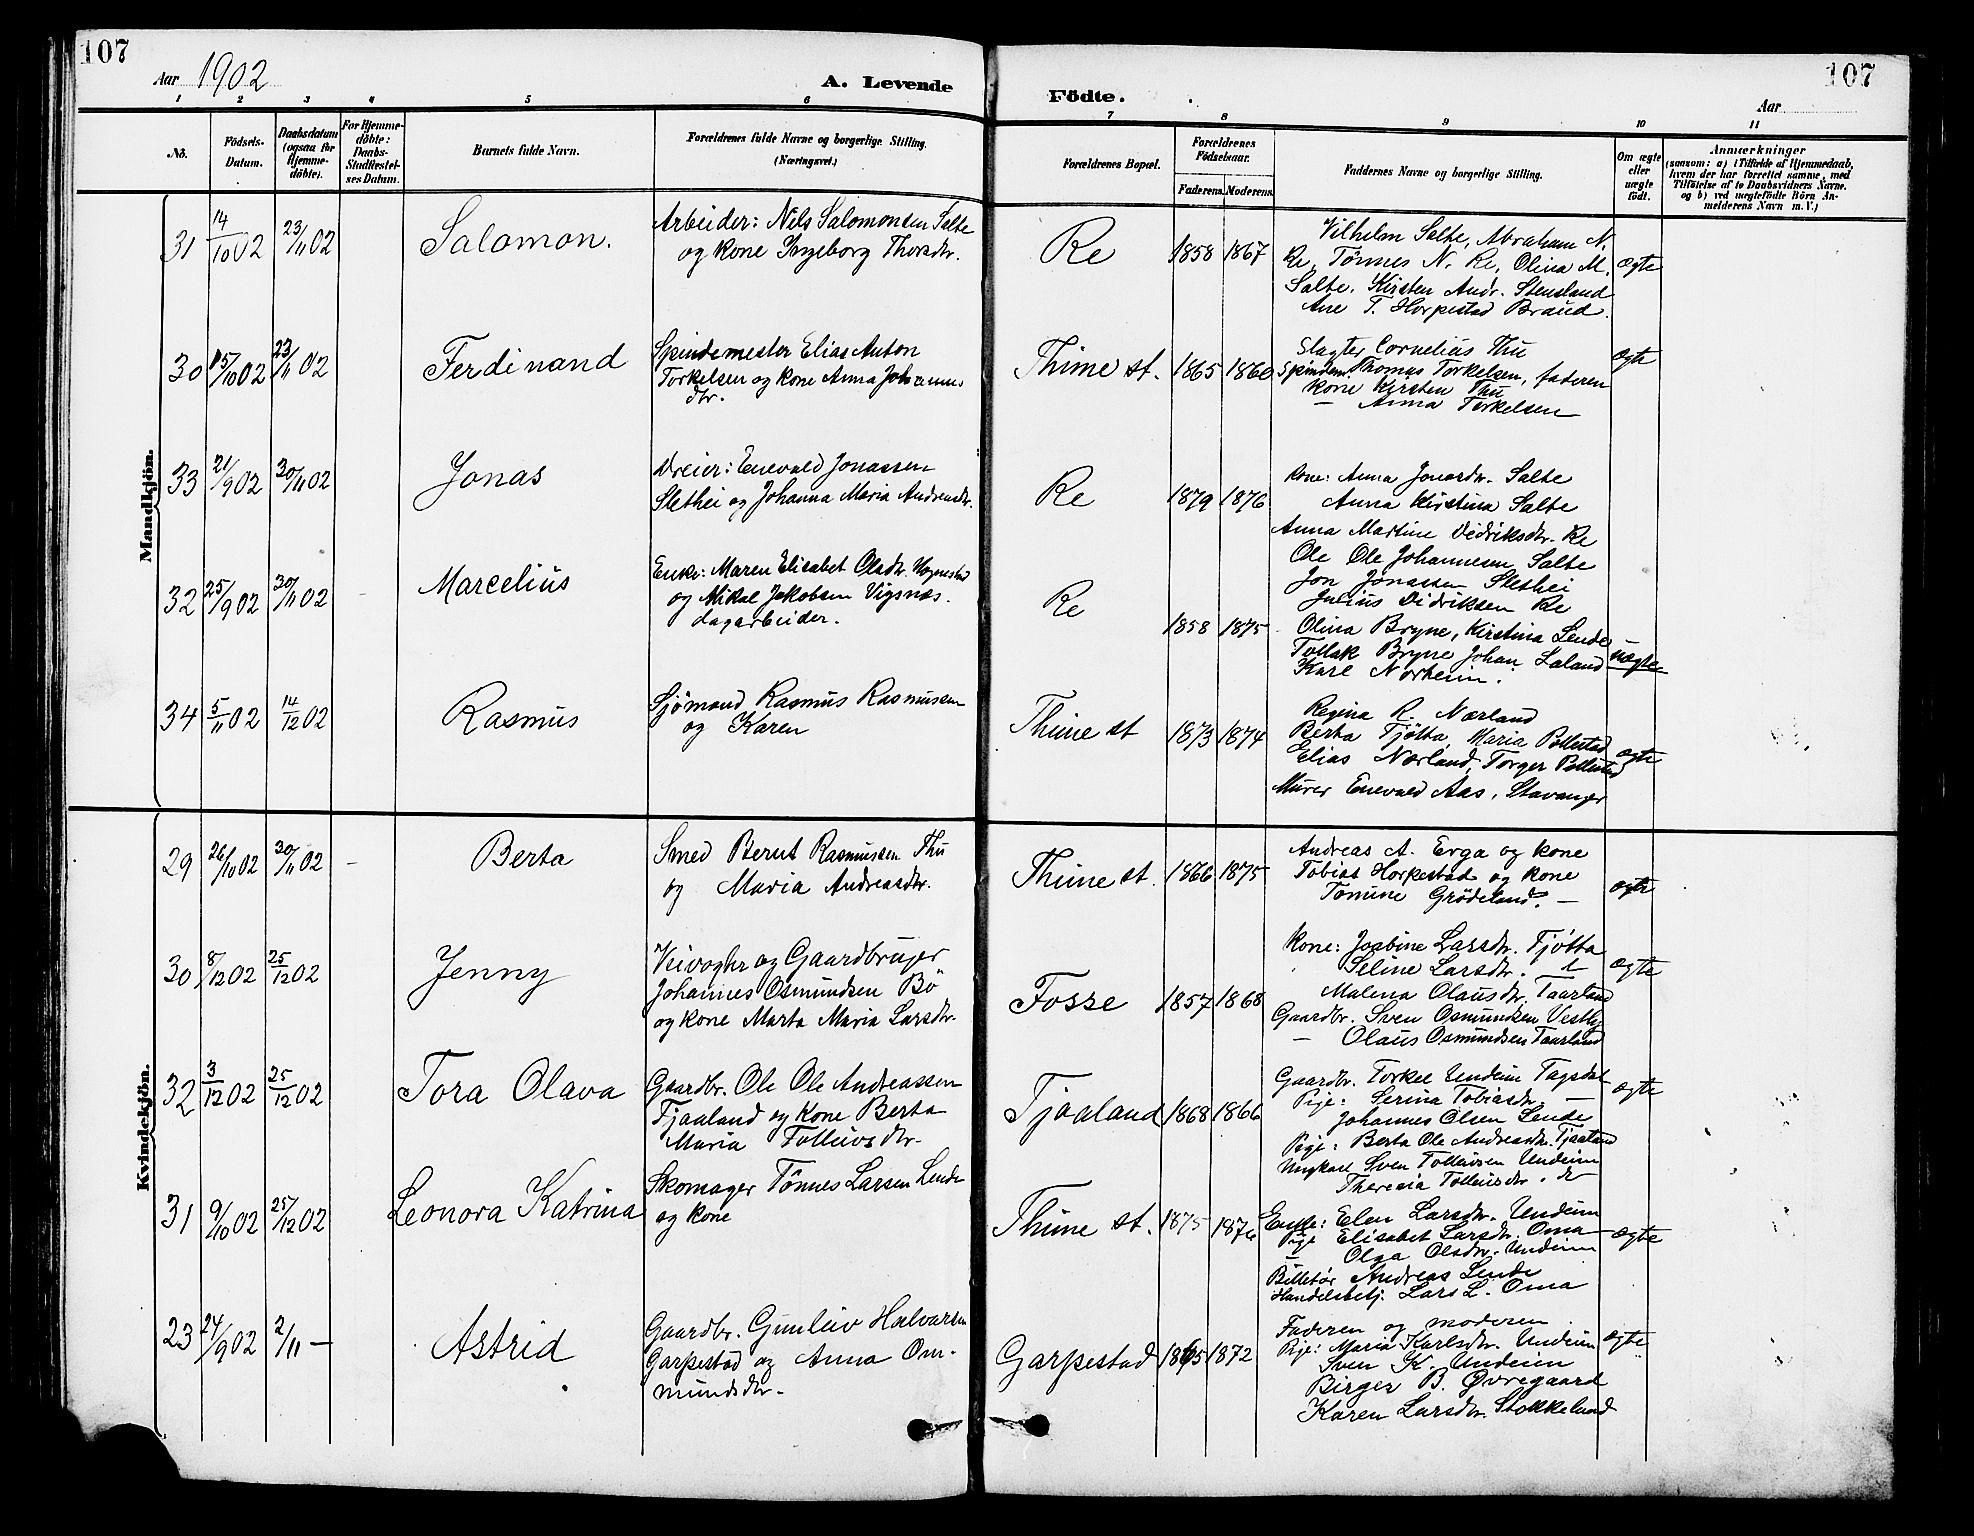 107
Aar 1902
A. Levende
Födte.
Aar
107
1 2 3 4 5 6 7 8 9 10 11
No.
Födsels-Datum.
Daabsdatum (ogsaa for Hjemme-döbte).
For Hjemme-döbte: Daabs-Stadfæstel-ses Datum.
Barnets fulde Navn.
Forældrenes fulde Navne og borgerlige Stilling. (Næringsvei.)
Forældrenes Bopæl.
Forældrenes Födselsaar.
Faderens. Moderens.
Faddernes Navne og borgerlige Stilling.
Om ægte eller uægte födt.
Anmærkninger
(saasom: a) i Tilfælde af Hjemmedaab, hvem der har forrettet samme, med Tilföielse af to Daabsvidners Navne. og b) ved uægtefödte Börn An-melderens Navn m. V.)
Mandkjön.
31 14/10 02 23/11 02 Salomon.
Arbeider: Nils Salomonsen Salte
og kone Ingeborg Thorsdtr.
Re 1858 1867
Vilhelm Salte, Abraham N.
Re, Tönnes N. Re, Olina M.
Salte. Kirsten Andr. Stensland
Ane T. Horpestad Braud.
ægte
30 15/10 02 23/11 02 Ferdinand
Spindemester Elias Anton
Torkelsen og kone Anna Johannes
dtr.
Thime st. 1865 1860
Slagter Cornelius Thu
Spindem. Thomas Torkelsen, faderen
kone Kirsten Thu
— Anna Torkelsen
ægte
33 21/9 02 30/11 02 Jonas
Dreier: Enevald Jonassen
Slethei og Johanna Maria Andreasdtr.
Re 1879 1876
Kone: Anna Jonasdtr. Salte
Anna Kirstina Salte
Anna Martine Didriksdtr. Re
Ole Ole Johannesen Salte
Jon Jonassen Slethei
Julius Didriksen Re
32 25/9 02 30/11 02 Marcelius
Enke: Maren Elisabet Olsdtr. Hognestad
og Mikal Jakobsen Vigsnæs.
dagarbeider.
Re 1858 1875
Olina Bryne, Kirstina Lende
Tollak Bryne Johan Laland
Karl Norheim.
uægte
34 5/11 02 14/12 02 Rasmus
Sjömand Rasmus Rasmussen
og Karen
Thime st 1873 1874
Regina R. Nærland
Berta Tjötta Maria Pollestad
Elias Nærland, Torger Pollestad
Murer Enevald Aas, Stavanger
ægte
Kvindekjön.
29 26/10 02 30/11 02 — Berta
Smed Berut Rasmussen Thu
og Maria Andreasdtr.
Thime st. 1866 1875
Andreas A. Erga og kone
Tobias Horkestad og kone
Tomine Grödeland. —
ægte
30 8/12 02 25/12 02 Jenny
Veivogter og Gaardbruger
Johannes Osmundsen Bö
og kone Marta Maria Larsdtr.
Fosse 1857 1868
Kone: Josbine Larsdtr. Tjötta
Seline Larsdtr.
Malena Olausdtr. Taarland
Gaardbr. Sven Osmundsen Vestly
— Olaus Osmundsen Taarland
ægte
32 3/12 02 25/12 02 Tora Olava
Gaardbr. Ole Ole Andreassen
Tjaaland og Kone Berta
Maria Tolleivsdtr.
Tjaaland 1868 1866
Gaardbr. Torkel Undeim Tagsdal
Pige: Serina Tobiasdtr. —
Johannes Olsen Lende
Pige: Berta Ole Andreasdtr. Tjaaland
Ungkarl Sven Tolleivsen Undeim
Theresia Tolleivsdtr. do
ægte
31 9/10 02 25/12 02 Leonora Katrina
Skomager Tönnes Larsen Lende
og kone
Thime st. 1875 1876
Enke: Elen Larsdtr. Undeim
Pige Elisabet Larsdtr. Oma
— Olga Olsdtr. Undeim
Billetör Andreas Lende
Handelsbetj. Lars L. Oma
ægte
23 24/9 02 2/11 — Astrid
Gaardbr. Gunleiv Halvorsen
Garpestad og Anna Om-
mundsdtr.
Garpestad 1865 1872
Faderen og moderen
Pige: Maria Karlsdtr. Undeim
Sven K. Undeim
Birger B. Øvregaard
Karen Larsdtr. Stokkeland
ægte